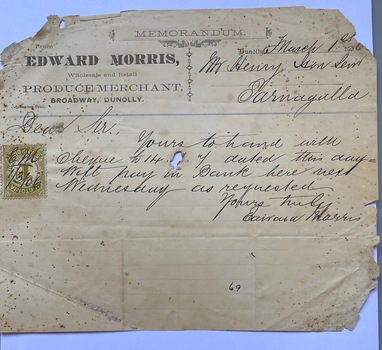 MEMORANDUM.
From
EDWARD MORRIS,
Wholesale and Retail
PRODUCE MERCHANT,
BROADWAY, DUNOLLY.
Dunolly, March 1st
Mr Henry
Tarnagulla
Dear Sir,
Yours to hand with
Cheque £14 dated this day
Will pay in Bank here next
Wednesday as requested
Yours truly
Edward Morris
69